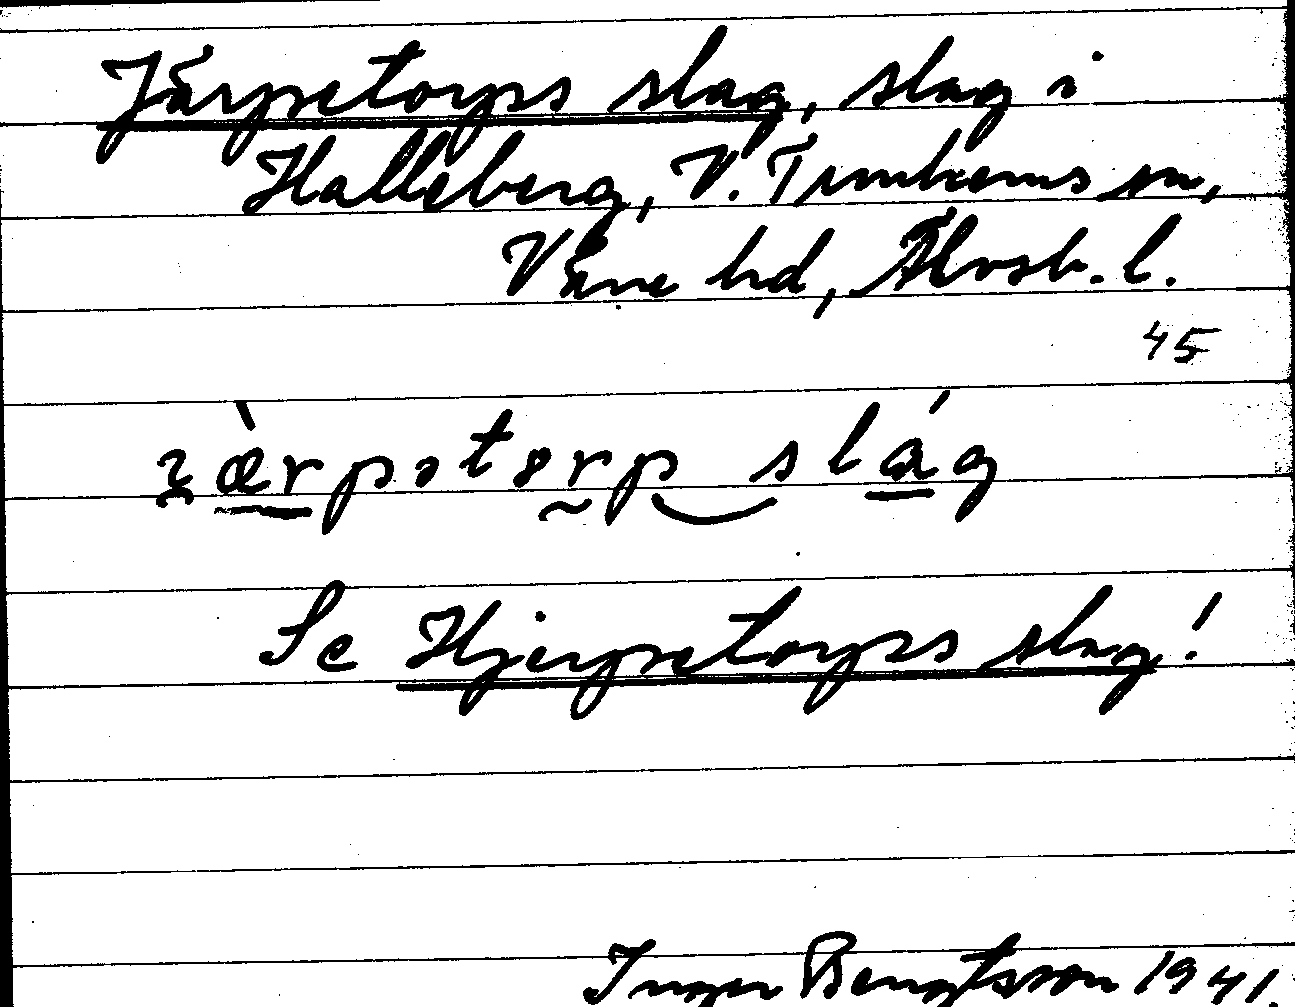 Järpetorps slag, slag i
Halleberg, V. Tunhems sn,
Väne hd, Älvsb. l.
45
ʒæ̀rpətɵrp slág
Se Hjerpetorps slag!
Inger Bengtsson 1941.